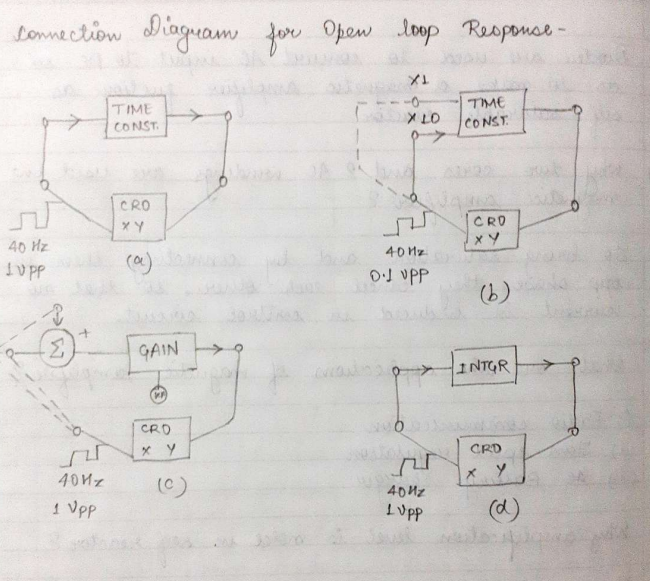 Connection Diagram for Open loop Response-
TIME
CONST.
CRO
X Y
40 Hz
1 VPP
(a)
X1
X10
TIME
CONST.
CRO
X Y
40Hz
0.1 VPP
(b)
Σ
+
GAIN
CRO
X Y
40Hz
1 VPP
(c)
INTGR
CRO
X Y
40Hz
1 VPP
(d)